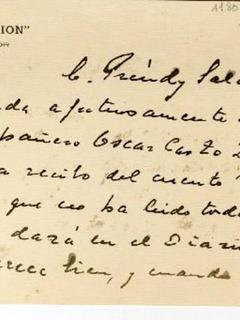 ION"
OR
1180
C. Préndy Sala
da afectuosamente
pañero Oscar Casto
a recibo del cuento
que no ha leido tod
dará en el Diari
rece bien, y cuando